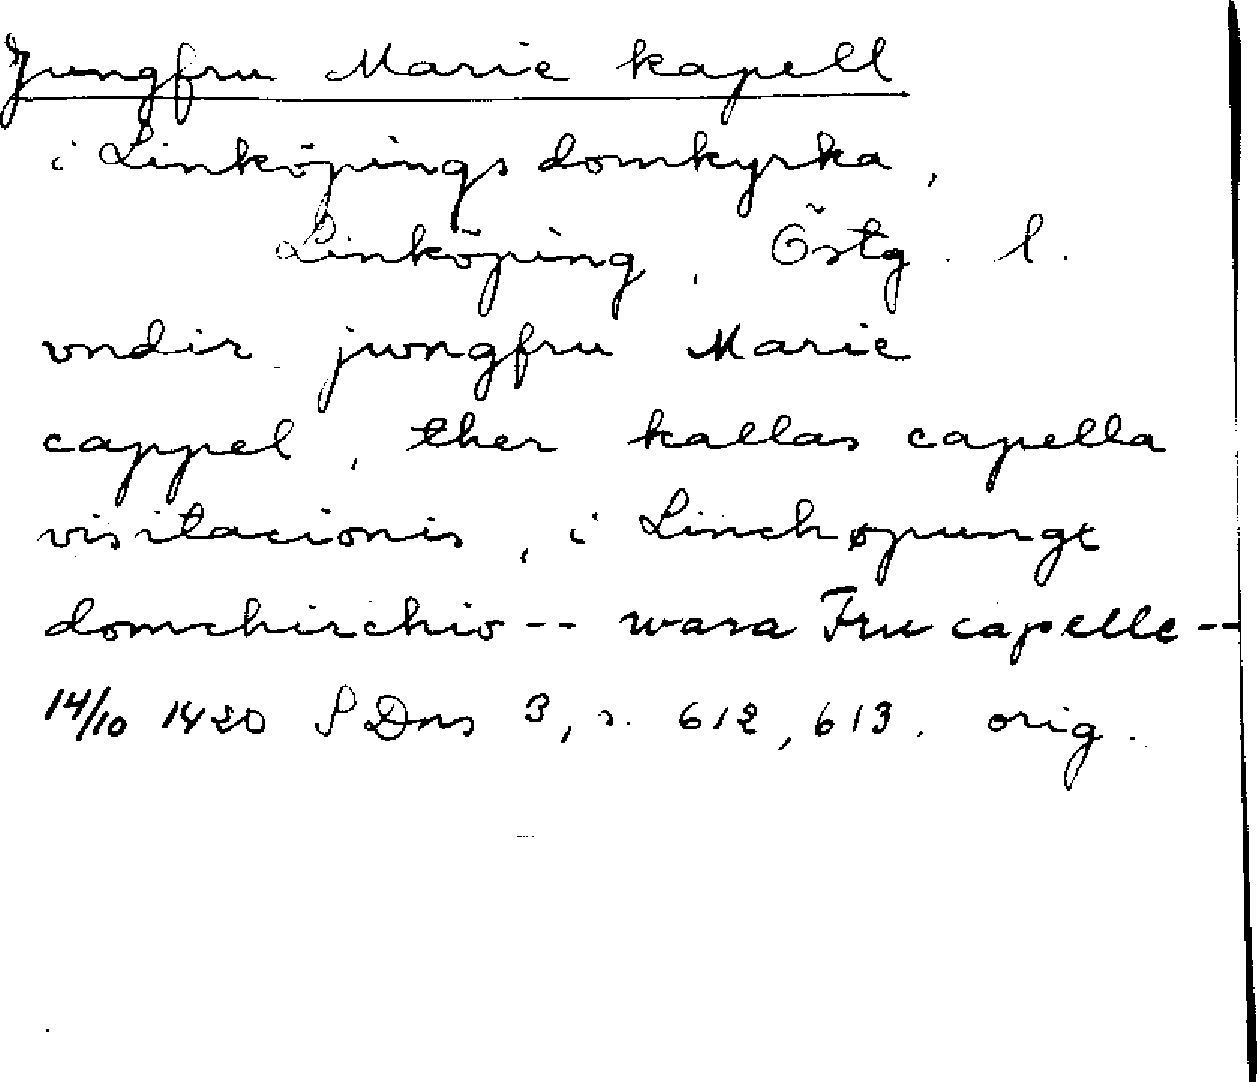 Jungfru Marie kapell
i Linköpings domkyrka,
Linköping, Östg. l.
vndir jwngfru Marie
cappel, ther kallas capella
visitacionis, i Linchøpunge
domchirchio -- wara Fru capelle --
14/10 1420 SDns 3, s. 612, 613. orig.